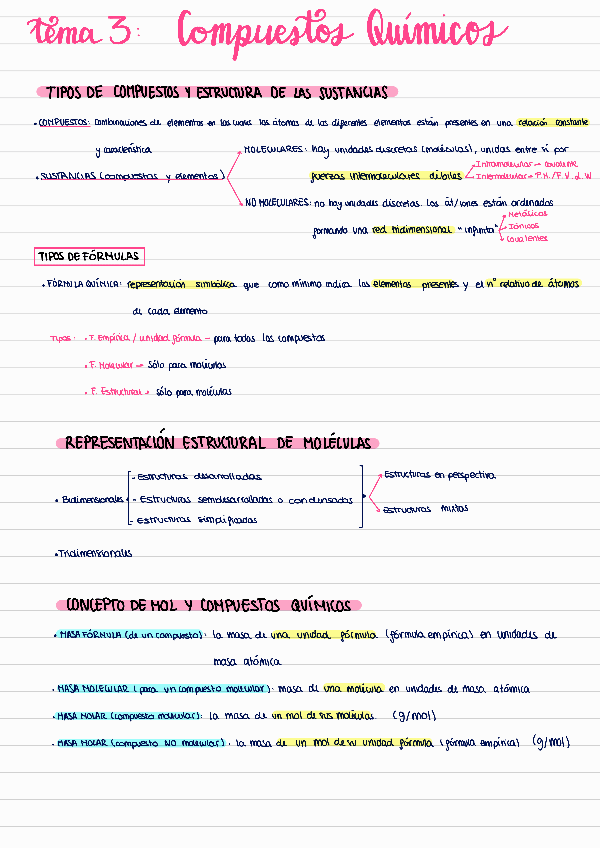 Tema 3: Compuestos Químicos
TIPOS DE COMPUESTOS Y ESTRUCTURA DE LAS SUSTANCIAS
· COMPUESTOS: combinaciones de elementos en las cuales los átomos de los diferentes elementos están presentes en una relación constante
y característica
· SUSTANCIAS (compuestos y elementos)
MOLECULARES: hay unidades discretas (moléculas), unidas entre sí por
fuerzas intermoleculares débiles
Intramolecular → covalente
Intermolecular → P.H./F.V.d.W
NO MOLECULARES: no hay unidades discretas. Los át/iones están ordenados
formando una red tridimensional "infinita"
Metálicos
Iónicos
Covalentes
TIPOS DE FÓRMULAS
· FÓRMULA QUÍMICA: representación simbólica que como mínimo indica los elementos presentes y el nº relativo de átomos
de cada elemento
Tipos: · F. Empírica / unidad fórmula → para todos los compuestos
· F. Molecular → sólo para moléculas
· F. Estructural → sólo para moléculas
REPRESENTACIÓN ESTRUCTURAL DE MOLÉCULAS
· Bidimensionales
- Estructuras desarrolladas
- Estructuras semidesarrolladas o condensadas
- Estructuras simplificadas
Estructuras en perspectiva
Estructuras mixtas
· Tridimensionales
CONCEPTO DE MOL Y COMPUESTOS QUÍMICOS
· MASA FÓRMULA (de un compuesto): la masa de una unidad fórmula (fórmula empírica) en unidades de
masa atómica
· MASA MOLECULAR (para un compuesto molecular): masa de una molécula en unidades de masa atómica
· MASA MOLAR (compuesto molecular): la masa de un mol de sus moléculas (g/mol)
· MASA MOLAR (compuesto NO molecular): la masa de un mol de su unidad fórmula (fórmula empírica) (g/mol)